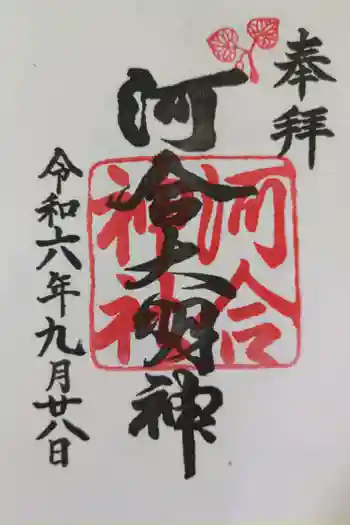 奉拝
河合大明神
河合
神社
令和六年九月廿八日